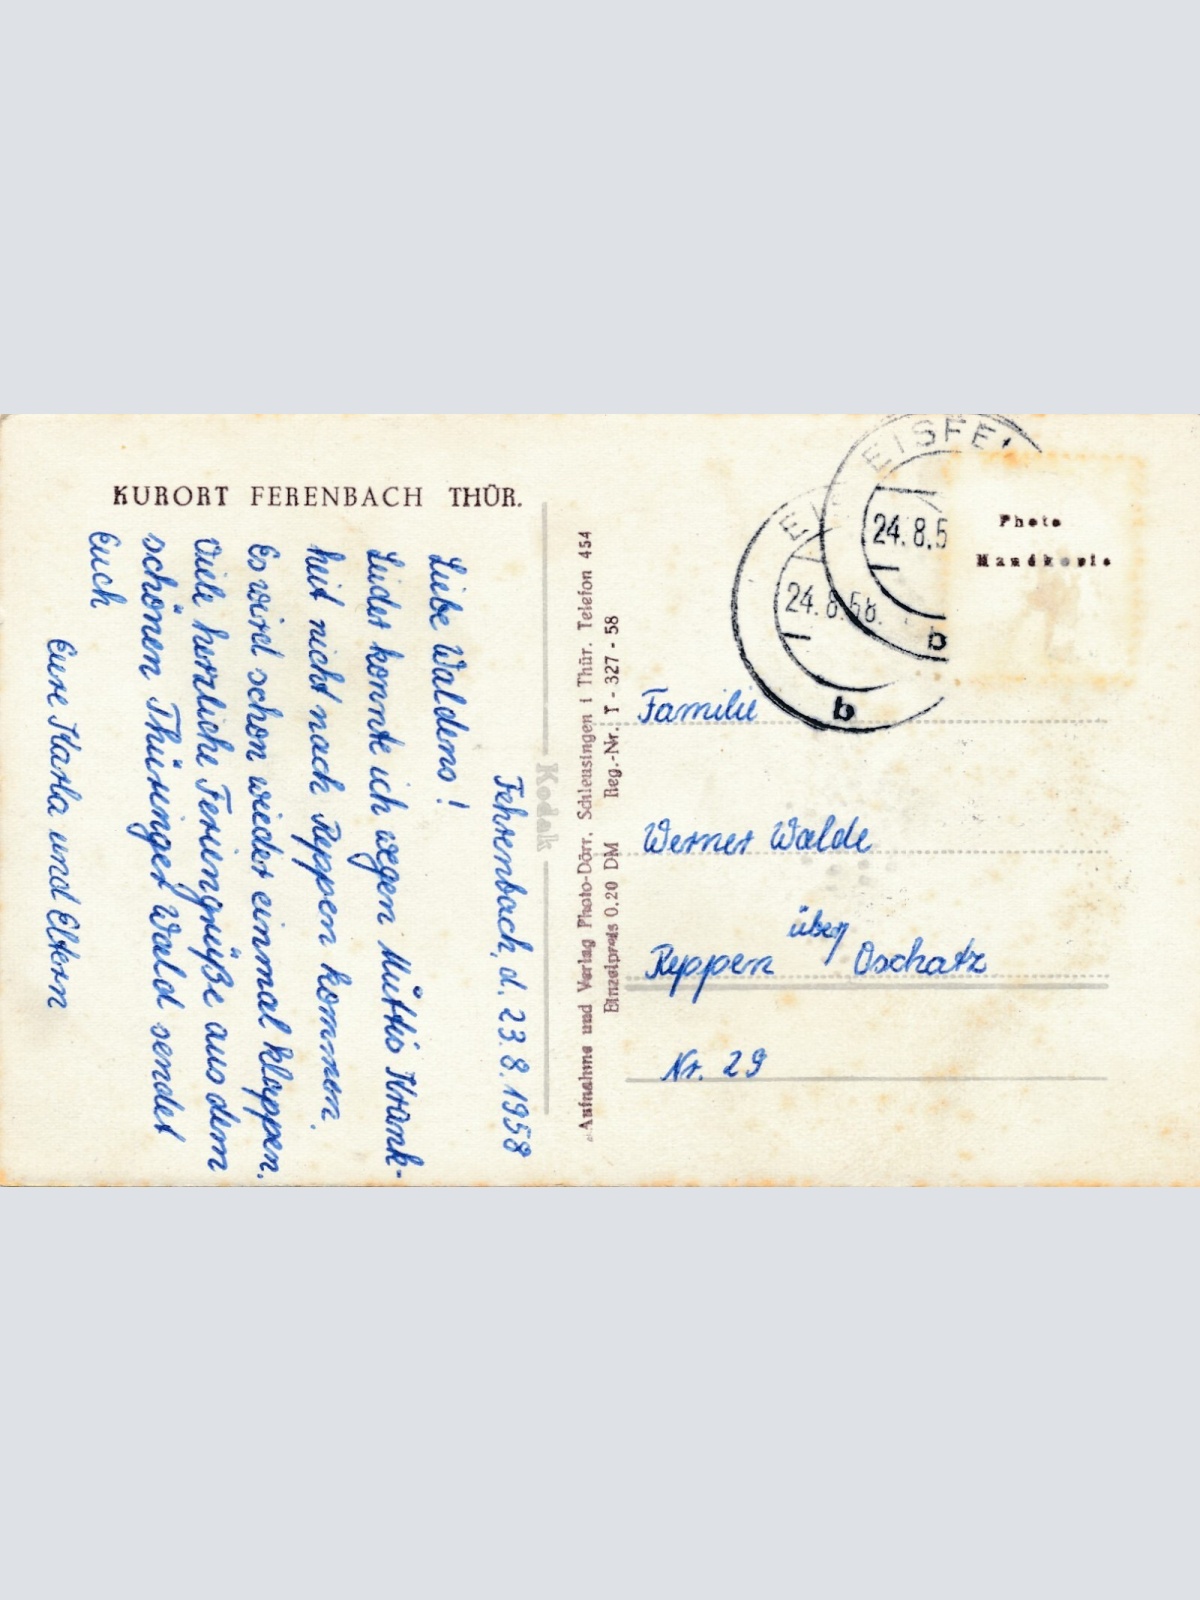 KURORT FERENBACH THÜR.
Fehrenbach, d. 23.8.1958
Liebe Waldens!
Leider konnte ich wegen Muttis Krank-
heit nicht nach Reppen kommen.
Es wird schon wieder einmal klappen.
Viele herzliche Feriengrüße aus dem
schönen Thüringer Wald sendet
Euch
Eure Karla und Eltern
Kodak
Aufnahme und Verlag Photo-Dörr, Schleusingen i Thür. Telefon 454
Einzelpreis 0.20 DM Reg.-Nr. T - 327 - 58
EISFE
24.8.5
b
EI
24.8.58.
b
Photo
Handkopie
Familie
Werner Walde
Reppen über Oschatz
Nr. 29